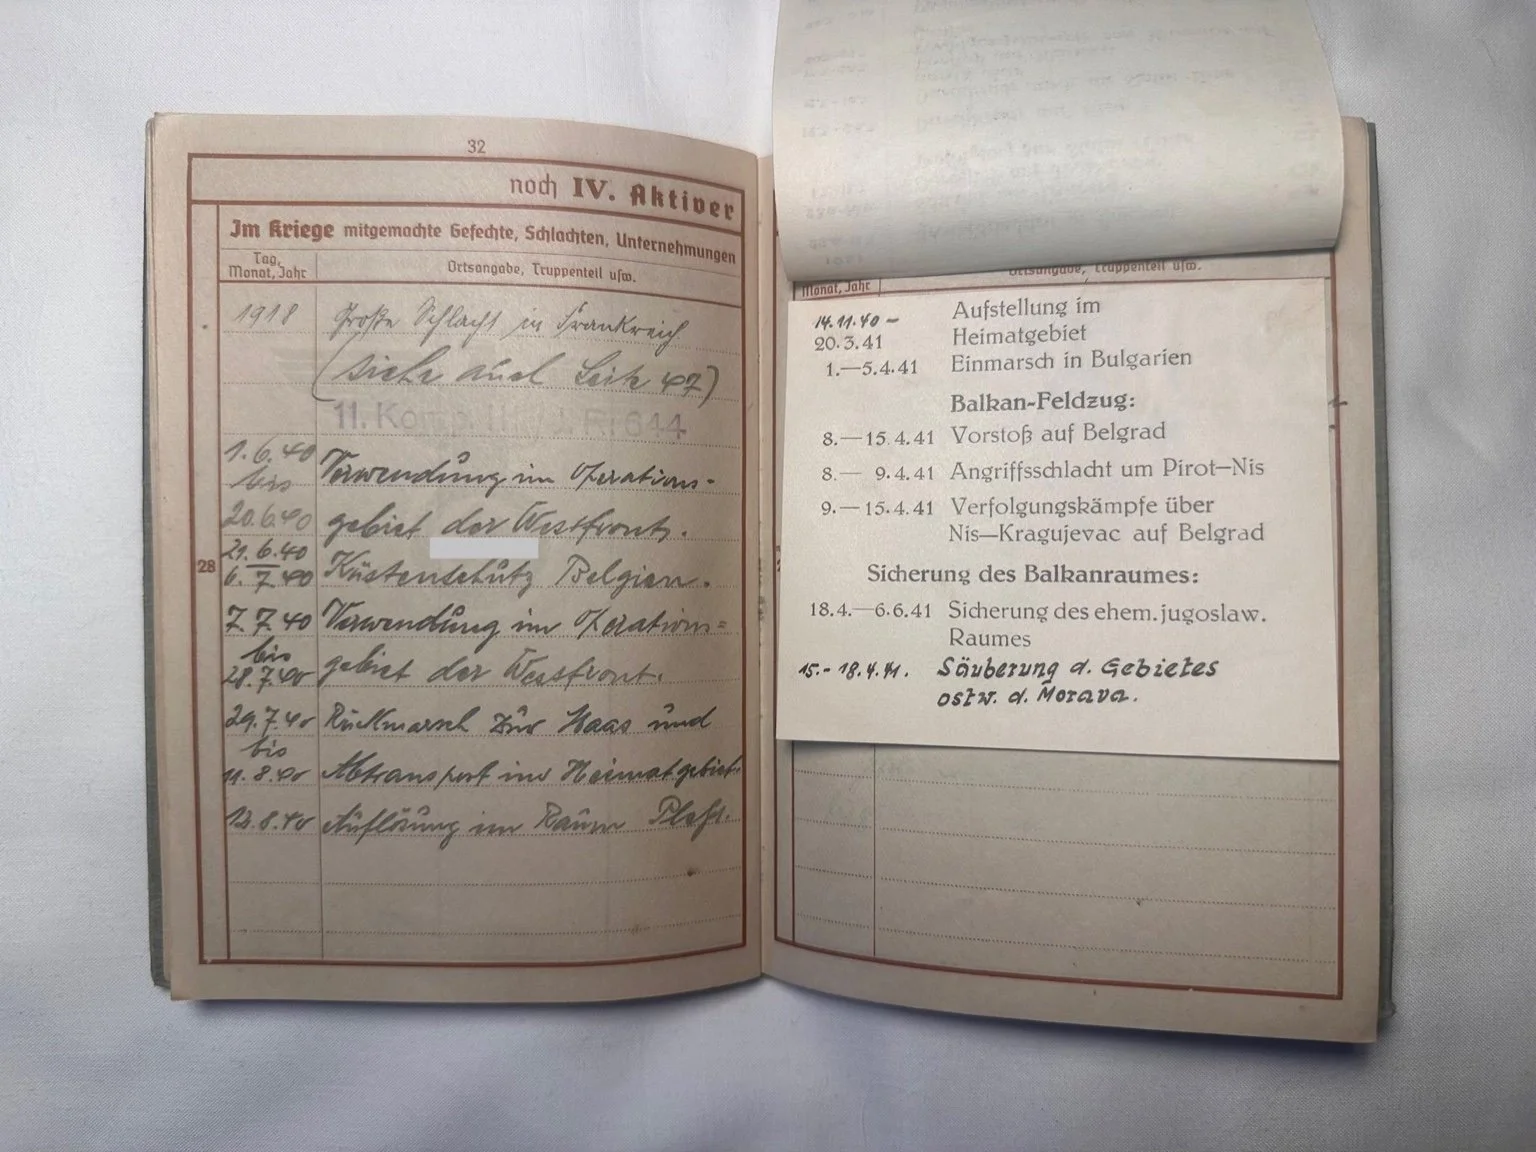 32
noch IV. Aktiver
Im Kriege mitgemachte Gefechte, Schlachten, Unternehmungen
Tag, Monat, Jahr
Ortsangabe, Truppenteil usw.
1918 Große Schlacht in Frankreich
(siehe auch Seite 47)
11. Komp. III./J.R. 644
1.6.40 bis 20.6.40 Verwendung im Operations-
gebiet der Westfront.
28
21.6.40 – 6.7.40 Küstenschutz Belgien.
7.7.40 bis 28.7.40 Verwendung im Operations=
gebiet der Westfront.
29.7.40 bis 11.8.40 Rückmarsch zur Maas und
Abtransport ins Heimatgebiet.
12.8.40 Auflösung im Raum
Monat, Jahr
Ortsangabe, Truppenteil usw.
14.11.40 – Aufstellung im
20.3.41 Heimatgebiet
1.—5.4.41 Einmarsch in Bulgarien
Balkan-Feldzug:
8.—15.4.41 Vorstoß auf Belgrad
8.— 9.4.41 Angriffsschlacht um Pirot—Nis
9.—15.4.41 Verfolgungskämpfe über
Nis—Kragujevac auf Belgrad
Sicherung des Balkanraumes:
18.4.—6.6.41 Sicherung des ehem. jugoslaw.
Raumes
15.- 18.4.41. Säuberung d. Gebietes
ostw. d. Morava.